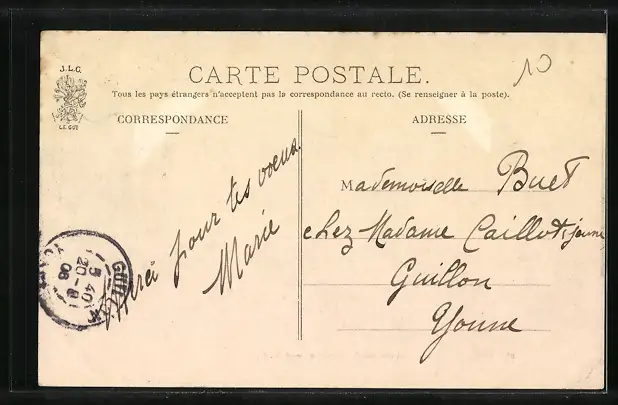 J.L.C.
LE GUI
10
CARTE POSTALE.
Tous les pays étrangers n'acceptent pas la correspondance au recto. (Se renseigner à la poste).
CORRESPONDANCE
Merci pour tes voeux.
Marie
5 40
20-8
06
ADRESSE
Mademoiselle Buet
chez Madame Caillot jeune
Guillon
Yonne